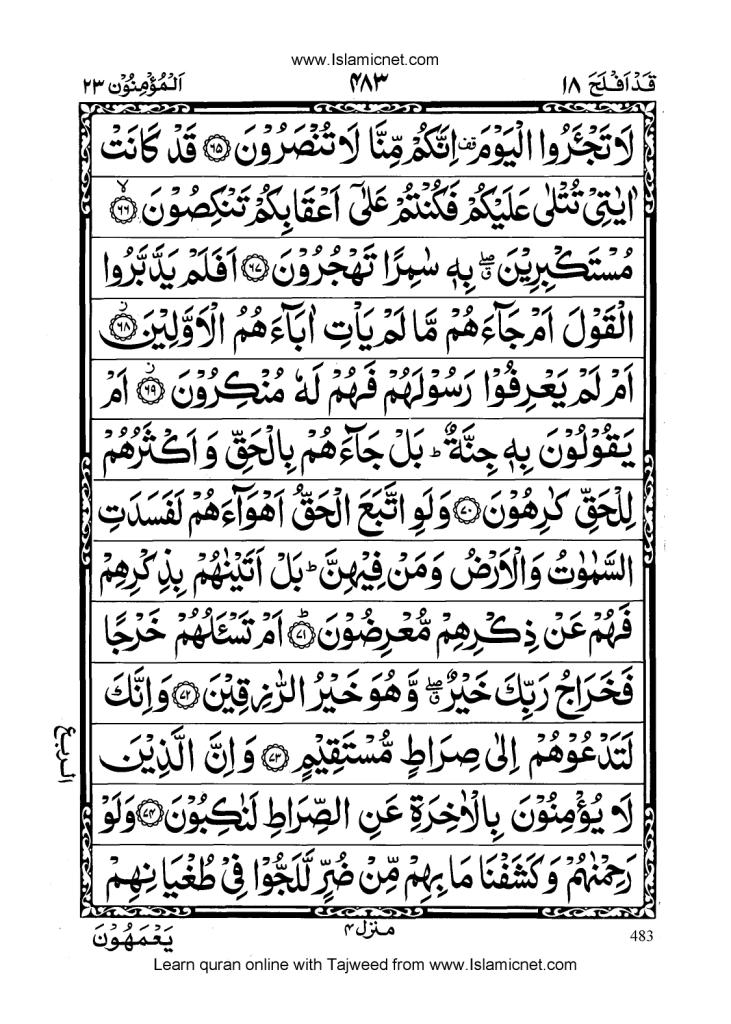 www.Islamicnet.com
قَدْ اَفْلَحَ ۱۸ ۴۸۳ اَلْمُؤْمِنُوْن ۲۳
لَا تَجْـَٔرُوا الْيَوْمَ ۫ اِنَّكُمْ مِّنَّا لَا تُنْصَرُوْنَ ﴿۶۵﴾ قَدْ كَانَتْ
اٰيٰتِيْ تُتْلٰى عَلَيْكُمْ فَكُنْتُمْ عَلٰٓى اَعْقَابِكُمْ تَنْكِصُوْنَ ﴿۶۶﴾ۙ
مُسْتَكْبِرِيْنَ ۖۗ بِهٖ سٰمِرًا تَهْجُرُوْنَ ﴿۶۷﴾ اَفَلَمْ يَدَّبَّرُوا
الْقَوْلَ اَمْ جَآءَهُمْ مَّا لَمْ يَاْتِ اٰبَآءَهُمُ الْاَوَّلِيْنَ ﴿۶۸﴾ؗ
اَمْ لَمْ يَعْرِفُوْا رَسُوْلَهُمْ فَهُمْ لَهٗ مُنْكِرُوْنَ ﴿۶۹﴾ؗ اَمْ
يَقُوْلُوْنَ بِهٖ جِنَّةٌ ؕ بَلْ جَآءَهُمْ بِالْحَقِّ وَ اَكْثَرُهُمْ
لِلْحَقِّ كٰرِهُوْنَ ﴿۷۰﴾ وَ لَوِ اتَّبَعَ الْحَقُّ اَهْوَآءَهُمْ لَفَسَدَتِ
السَّمٰوٰتُ وَ الْاَرْضُ وَ مَنْ فِيْهِنَّ ؕ بَلْ اَتَيْنٰهُمْ بِذِكْرِهِمْ
فَهُمْ عَنْ ذِكْرِهِمْ مُّعْرِضُوْنَ ﴿۷۱﴾ؕ اَمْ تَسْـَٔلُهُمْ خَرْجًا
فَخَرَاجُ رَبِّكَ خَيْرٌ ۖۗ وَّ هُوَ خَيْرُ الرّٰزِقِيْنَ ﴿۷۲﴾ وَ اِنَّكَ
لَتَدْعُوْهُمْ اِلٰى صِرَاطٍ مُّسْتَقِيْمٍ ﴿۷۳﴾ وَ اِنَّ الَّذِيْنَ
الربع
لَا يُؤْمِنُوْنَ بِالْاٰخِرَةِ عَنِ الصِّرَاطِ لَنٰكِبُوْنَ ﴿۷۴﴾ وَ لَوْ
رَحِمْنٰهُمْ وَ كَشَفْنَا مَا بِهِمْ مِّنْ ضُرٍّ لَّلَجُّوْا فِيْ طُغْيَانِهِمْ
483 منزل ۴ يَعْمَهُوْنَ
Learn quran online with Tajweed from www.Islamicnet.com